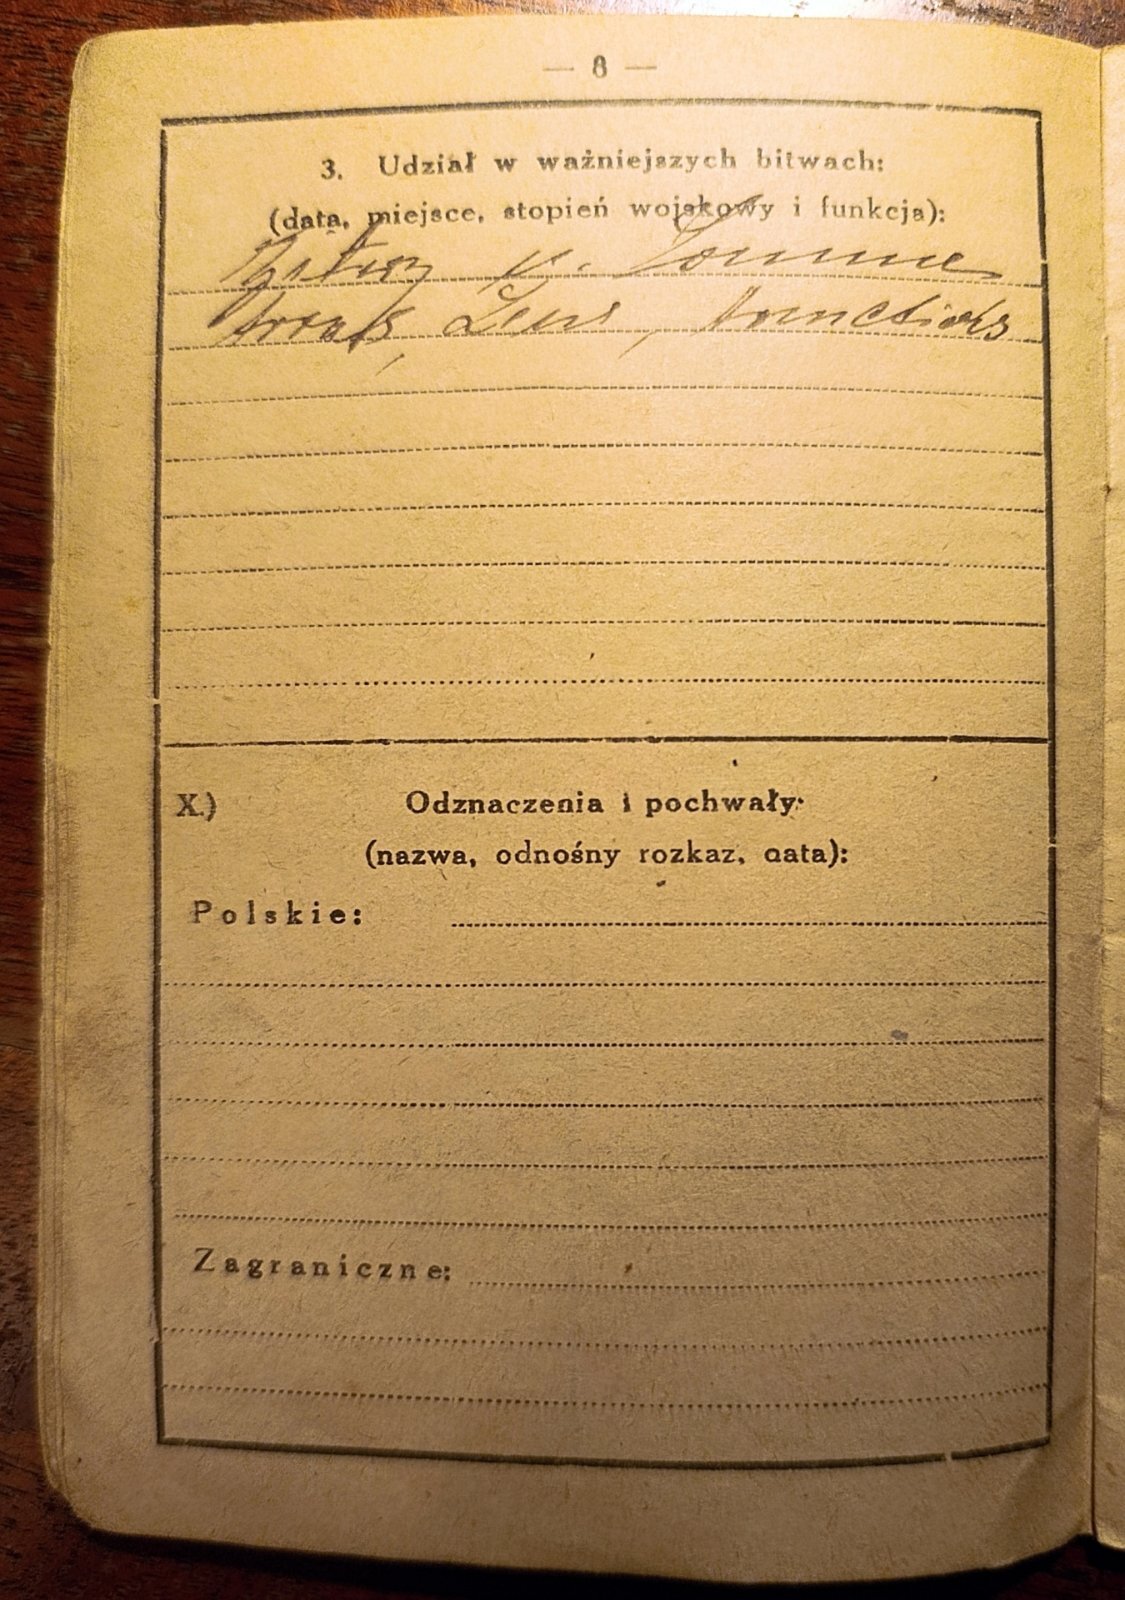 — 8 —
3. Udział w ważniejszych bitwach:
(data, miejsce, stopień wojskowy i funkcja):
Somme
Arras, Lens,
X.) Odznaczenia i pochwały:
(nazwa, odnośny rozkaz, data):
Polskie:
Zagraniczne: